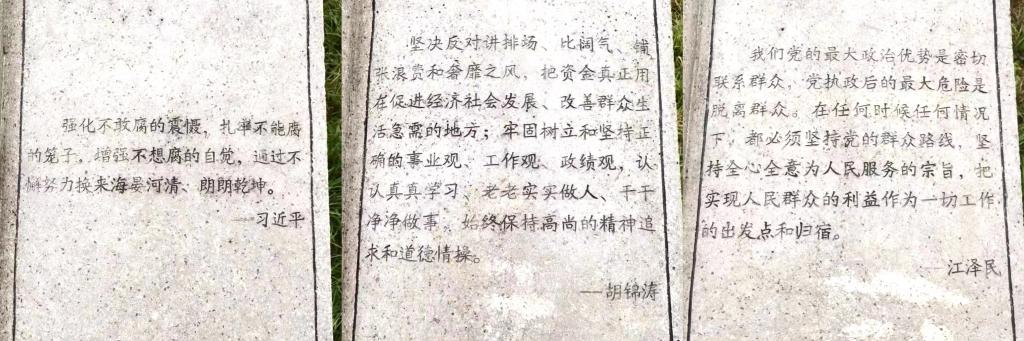 强化不敢腐的震慑，扎牢不能腐
的笼子，增强不想腐的自觉，通过不
懈努力换来海晏河清、朗朗乾坤。
——习近平
坚决反对讲排场、比阔气、铺
张浪费和奢靡之风，把资金真正用
在促进经济社会发展、改善群众生
活急需的地方；牢固树立和坚持正
确的事业观、工作观、政绩观，认
认真真学习、老老实实做人、干干
净净做事，始终保持高尚的精神追
求和道德情操。
——胡锦涛
我们党的最大政治优势是密切
联系群众，党执政后的最大危险是
脱离群众。在任何时候任何情况
下，都必须坚持党的群众路线，坚
持全心全意为人民服务的宗旨，把
实现人民群众的利益作为一切工作
的出发点和归宿。
——江泽民